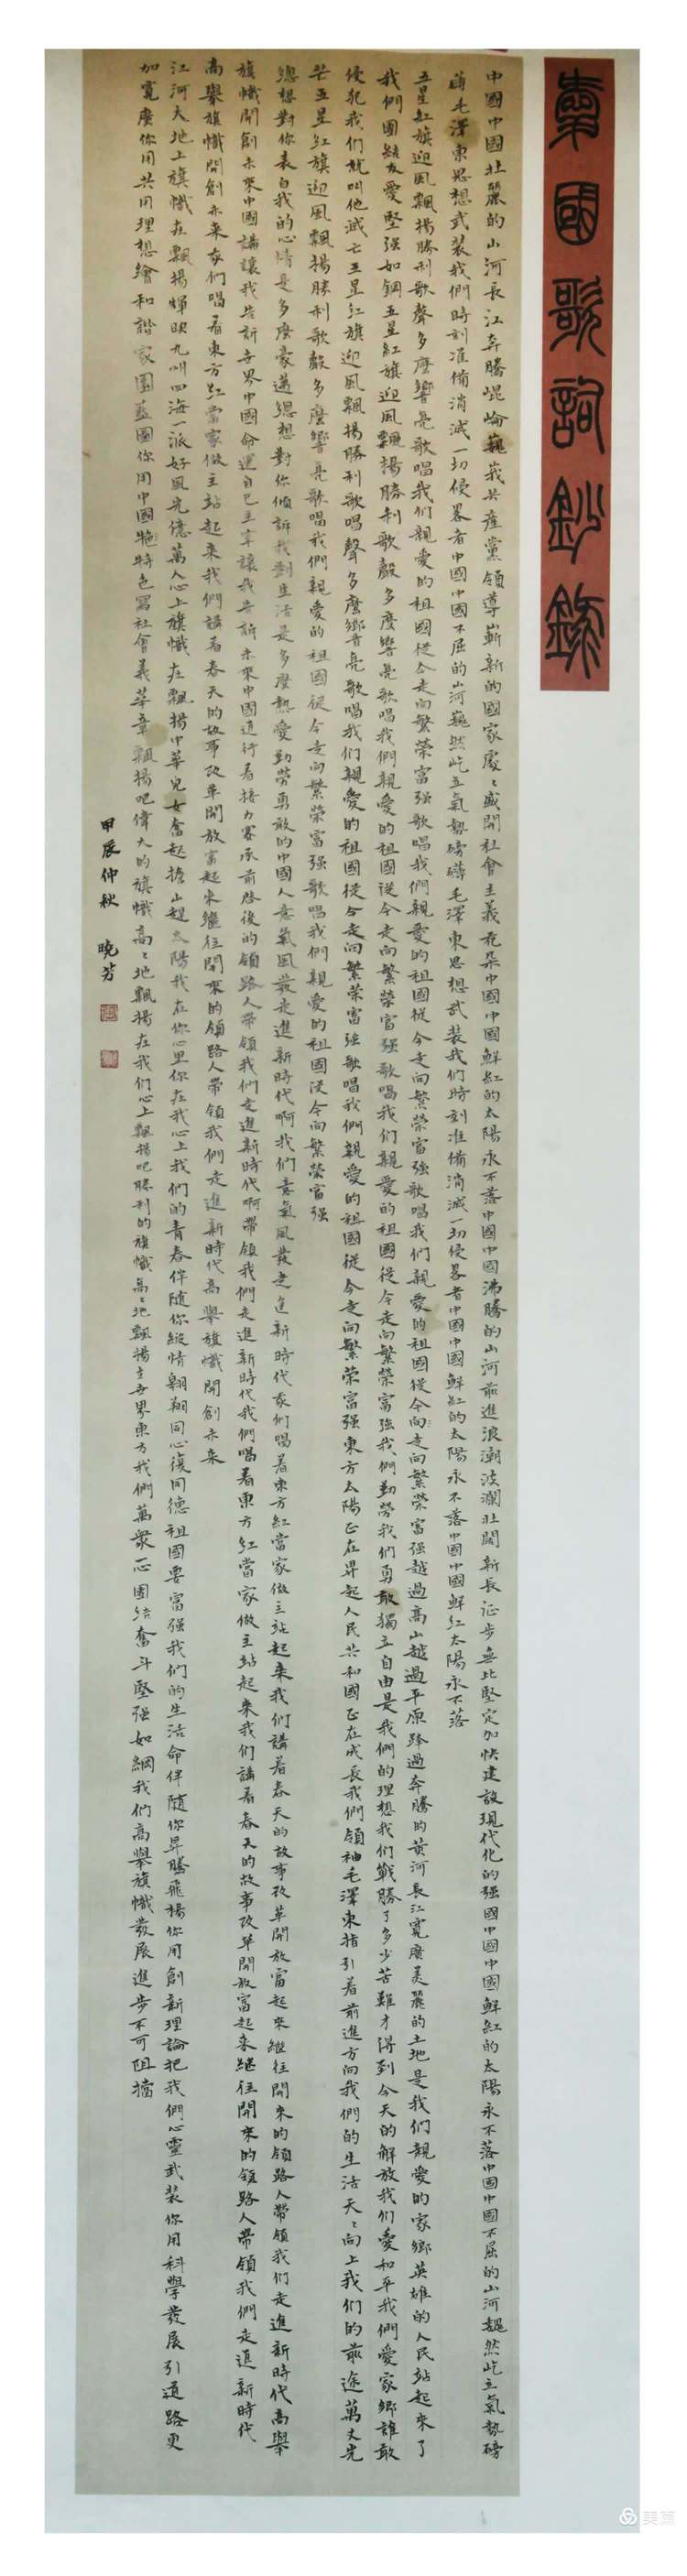 愛國歌詞鈔錄
中國中國壯麗的山河長江奔騰崐崘巍峩共產黨領導嶄新的國家處〻盛開社會主義花朶中國中國鮮紅的太陽永不落中國中國沸騰的山河前進浪潮波瀾壯闊新長征步無比堅定加快建設現代化的强國中國中國鮮紅的太陽永不落中國中國不屈的山河巍然屹立氣勢磅
礴毛澤東思想武装我們時刻准備消滅一切侵畧者中國中國不屈的山河巍然屹立氣勢磅礴毛澤東思想武装我们時刻准備消滅一切侵畧者中國中國鮮紅的太陽永不落中國中國鮮紅太陽永不落
五星紅旗迎風飄揚勝利歌聲多麼響亮歌唱我们親愛的祖國從今走向繁榮富强歌唱我們親愛的祖國從今走向繁榮富强歌唱我们親愛的祖國從今向走向繁榮富强越過高山越過平原跨過奔騰的黄河長江寬廣美麗的土地是我们親愛的家鄉英雄的人民站起來了
我們團結友愛堅强如鋼五星紅旗迎風飄揚勝利歌聲多麼響亮歌唱我們親愛的祖國從今走向繁榮富强歌唱我们親愛的祖國從今走向繁榮富强我們勤勞我们勇敢獨立自由是我們的理想我们戰勝了多少苦難才得到今天的解放我们愛和平我們愛家鄉誰敢
侵犯我们就叫他滅亡五星紅旗迎風飄揚勝利歌唱聲多麼響亮歌唱我们親愛的祖國從今走向繁榮富强歌唱我們親愛的祖國從今走向繁榮富强東方太陽正在昇起人民共和國正在成長我們領袖毛澤東指引着前進方向我們的生活天〻向上我们的前途萬丈光
芒五星紅旗迎風飄揚勝利歌聲多麼響亮歌唱我們親愛的祖國從今走向繁榮富强歌唱我們親愛的祖國從今向繁榮富强
總想對你表白我的心情是多麼豪邁總想對你傾訴我對生活是多麼熱愛勤勞勇敢的中國人意氣風發走進新時代啊我们意氣風發走進新時代我们唱着東方紅當家做主站起來我们講着春天的故事改革開放富起來繼往開來的領路人帶領我们走進新時代高舉
旗幟開創未來中國講讓我告訴世界中國命運自己主宰讓我告訴未來中國進行着接力賽承前啓後的領路人帶領我们走進新時代啊帶領我們走進新時代我們唱着東方紅當家做主站起來我们講着春天的故事改革開放富起來繼往開來的領路人帶領我們走進新時代
高舉旗幟開創未來我们唱着東方紅當家做主站起來我們講着春天的故事改革開放富起來繼往開來的領路人帶領我们走進新時代高舉旗幟開創未來
江河大地上旗幟在飄揚輝映九州四海一派好風光億萬人心上旗幟在飄揚中華兒女奮起擔山趕太陽我在你心里你在我心上我们的青春伴隨你縱情翱翔同心復同德祖國要富强我們的生活命伴隨你昇騰飛揚你用創新理論把我們心靈武装你用科學發展引道路更
加寬廣你用共同理想繪和諧家園藍圖你用中國特色寫社會義華章飄揚吧偉大的旗幟高〻地飄揚在我们心上飄揚吧勝利的旗幟高〻地飄揚在世界東方我們萬衆一心團结奮斗堅强如鋼我们高舉旗幟發展進步不可阻擋
甲辰仲秋 曉芳
美篇